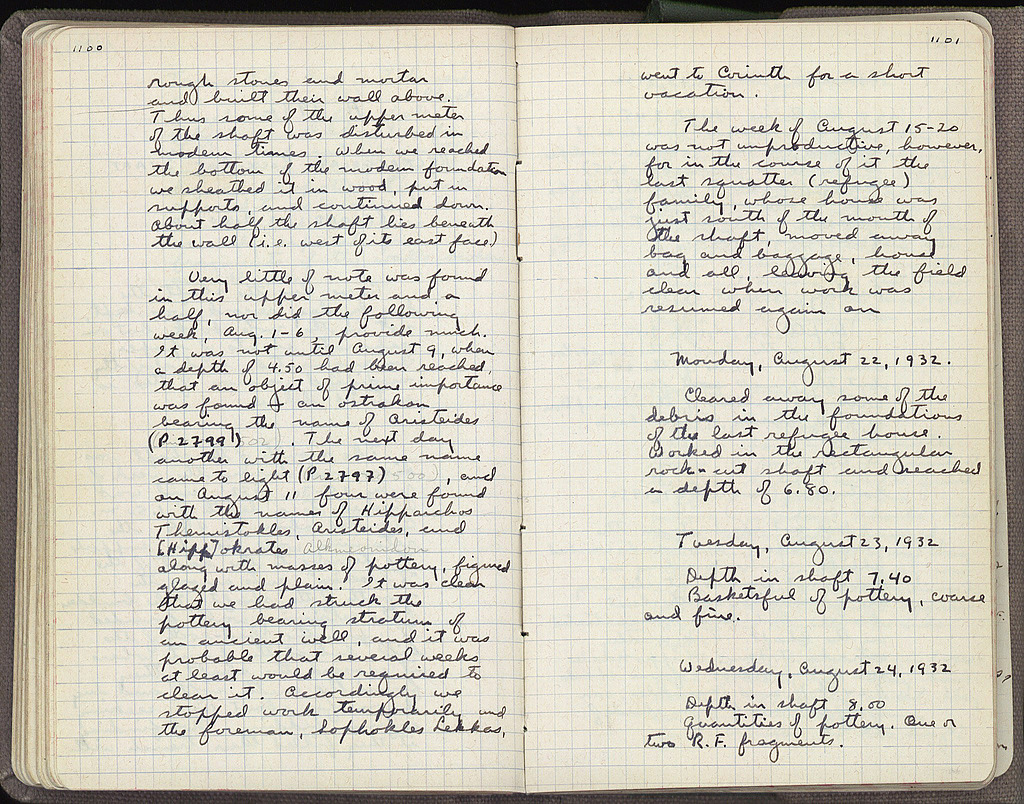 1100
rough stones and mortar
and built their wall above.
Thus some of the upper meter
of the shaft was disturbed in
modern times. When we reached
the bottom of the modern foundation
we sheathed it in wood, put in
supports, and continued down.
About half the shaft lies beneath
the wall (i.e. west of its east face)
Very little of note was found
in this upper meter and a
half, nor did the following
week, Aug. 1-6, provide much.
It was not until August 9, when
a depth of 4.50 had been reached,
that an object of prime importance
was found - an ostrakon
bearing the name of Aristeides
(P 2799). The next day
another with the same name
came to light (P 2797), and
on August 11 four were found
with the names of Hipparchos
Themistokles, Aristeides, and
[Hipp]okrates Alkmeonidou
along with masses of pottery, figured
glazed and plain. It was clear
that we had struck the
pottery bearing stratum of
an ancient well, and it was
probable that several weeks
at least would be required to
clear it. Accordingly we
stopped work temporarily and
the foreman, Sophokles Lekkas,
1101
went to Corinth for a short
vacation.
The week of August 15-20
was not unproductive, however,
for in the course of it the
last squatter (refugee)
family, whose house was
just south of the mouth of
the shaft, moved away
bag and baggage, house
and all, leaving the field
clear when work was
resumed again on
Monday, August 22, 1932.
Cleared away some of the
debris in the foundations
of the last refugee house.
Worked in the rectangular
rock-cut shaft and reached
a depth of 6.80.
Tuesday, August 23, 1932
Depth in shaft 7.40
Basketsful of pottery, coarse
and fine.
Wednesday, August 24, 1932
Depth in shaft 8.00
Quantities of pottery. One or
two R.F. fragments.